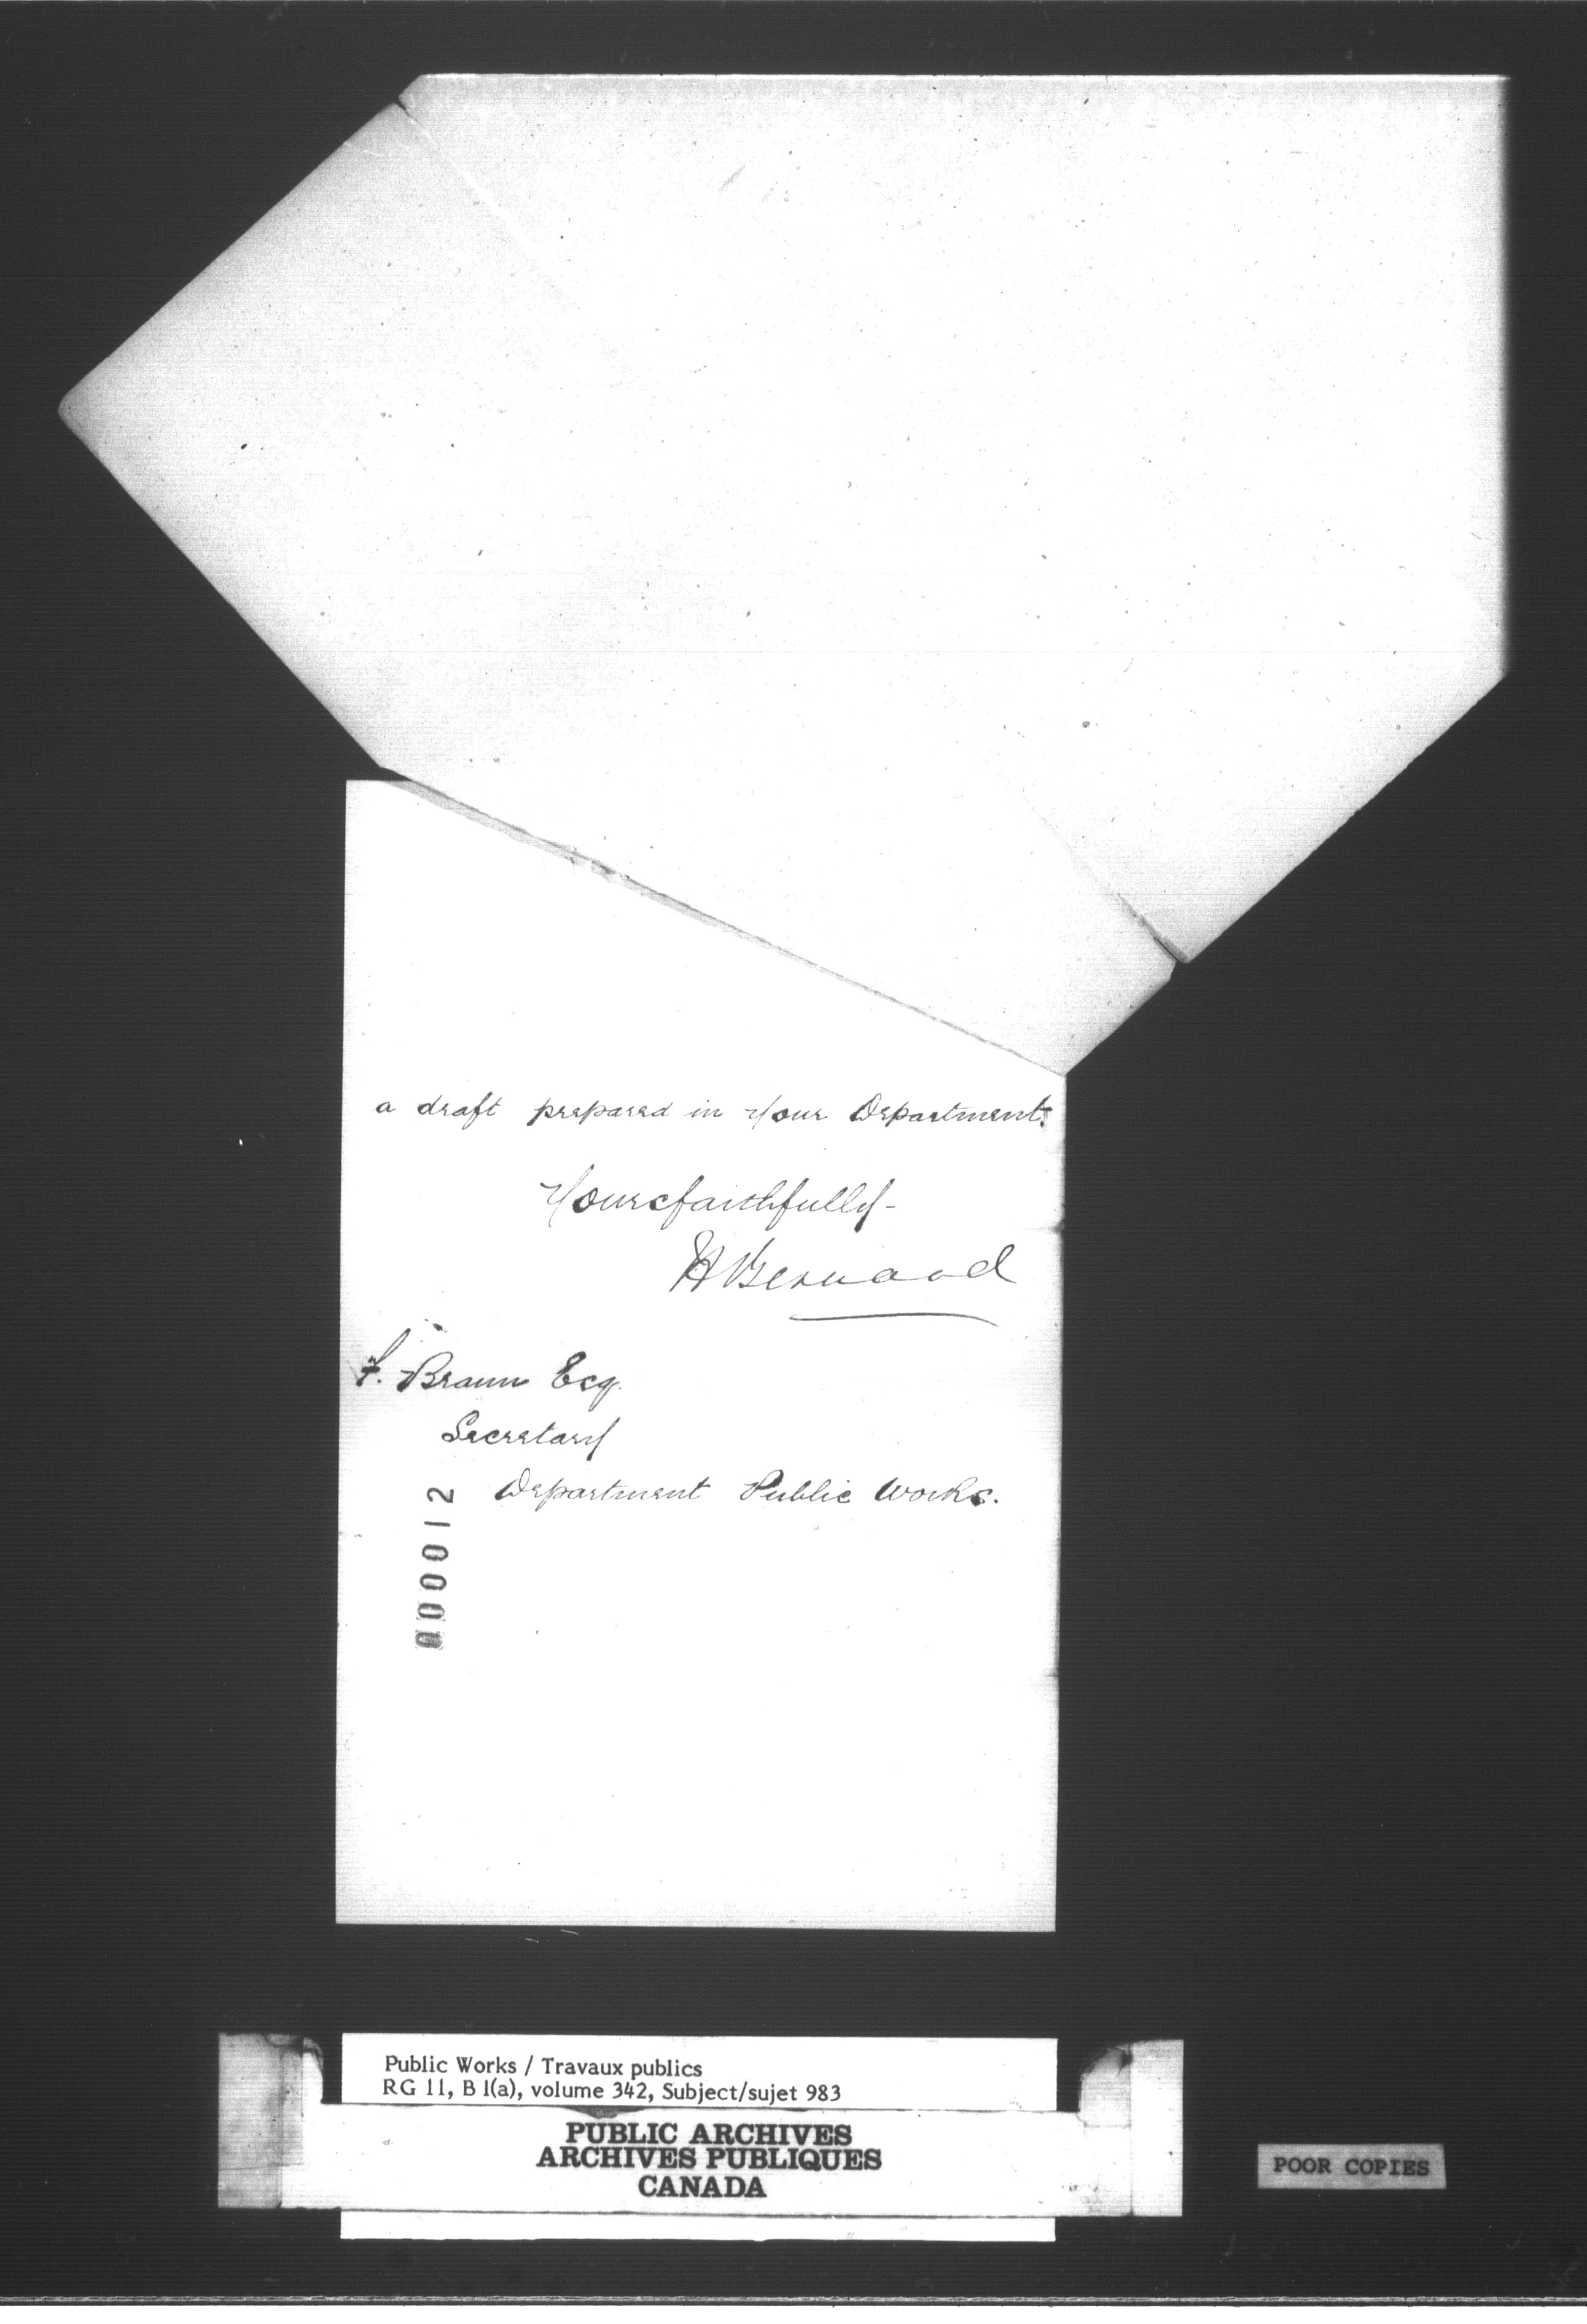 a draft prepared in Your Department.
Yours faithfully-
H Bernard
F. Braun Esq.
Secretary
Department Public Works.
000012
Public Works / Travaux publics
RG 11, B 1(a), volume 342, Subject/sujet 983
PUBLIC ARCHIVES
ARCHIVES PUBLIQUES
CANADA
POOR COPIES